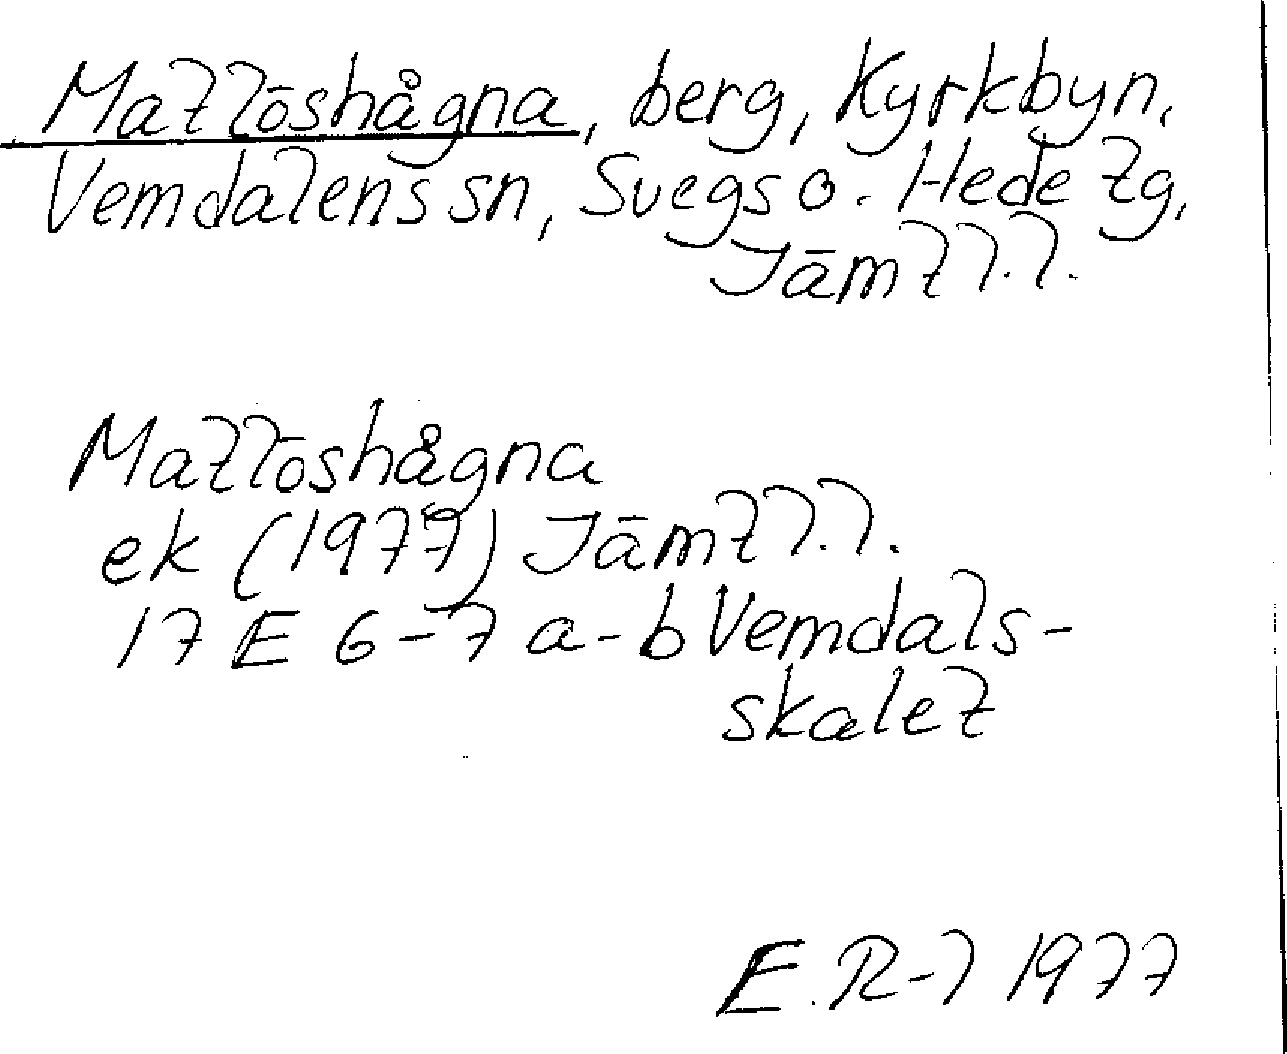 Matlöshågna, berg, Kyrkbyn,
Vemdalens sn, Svegs o. Hede tg,
Jämtl.l.
Matlöshågna
ek (1977) Jämtl.l.
17 E 6-7 a-b Vemdals-
skalet
E.R-l 1977